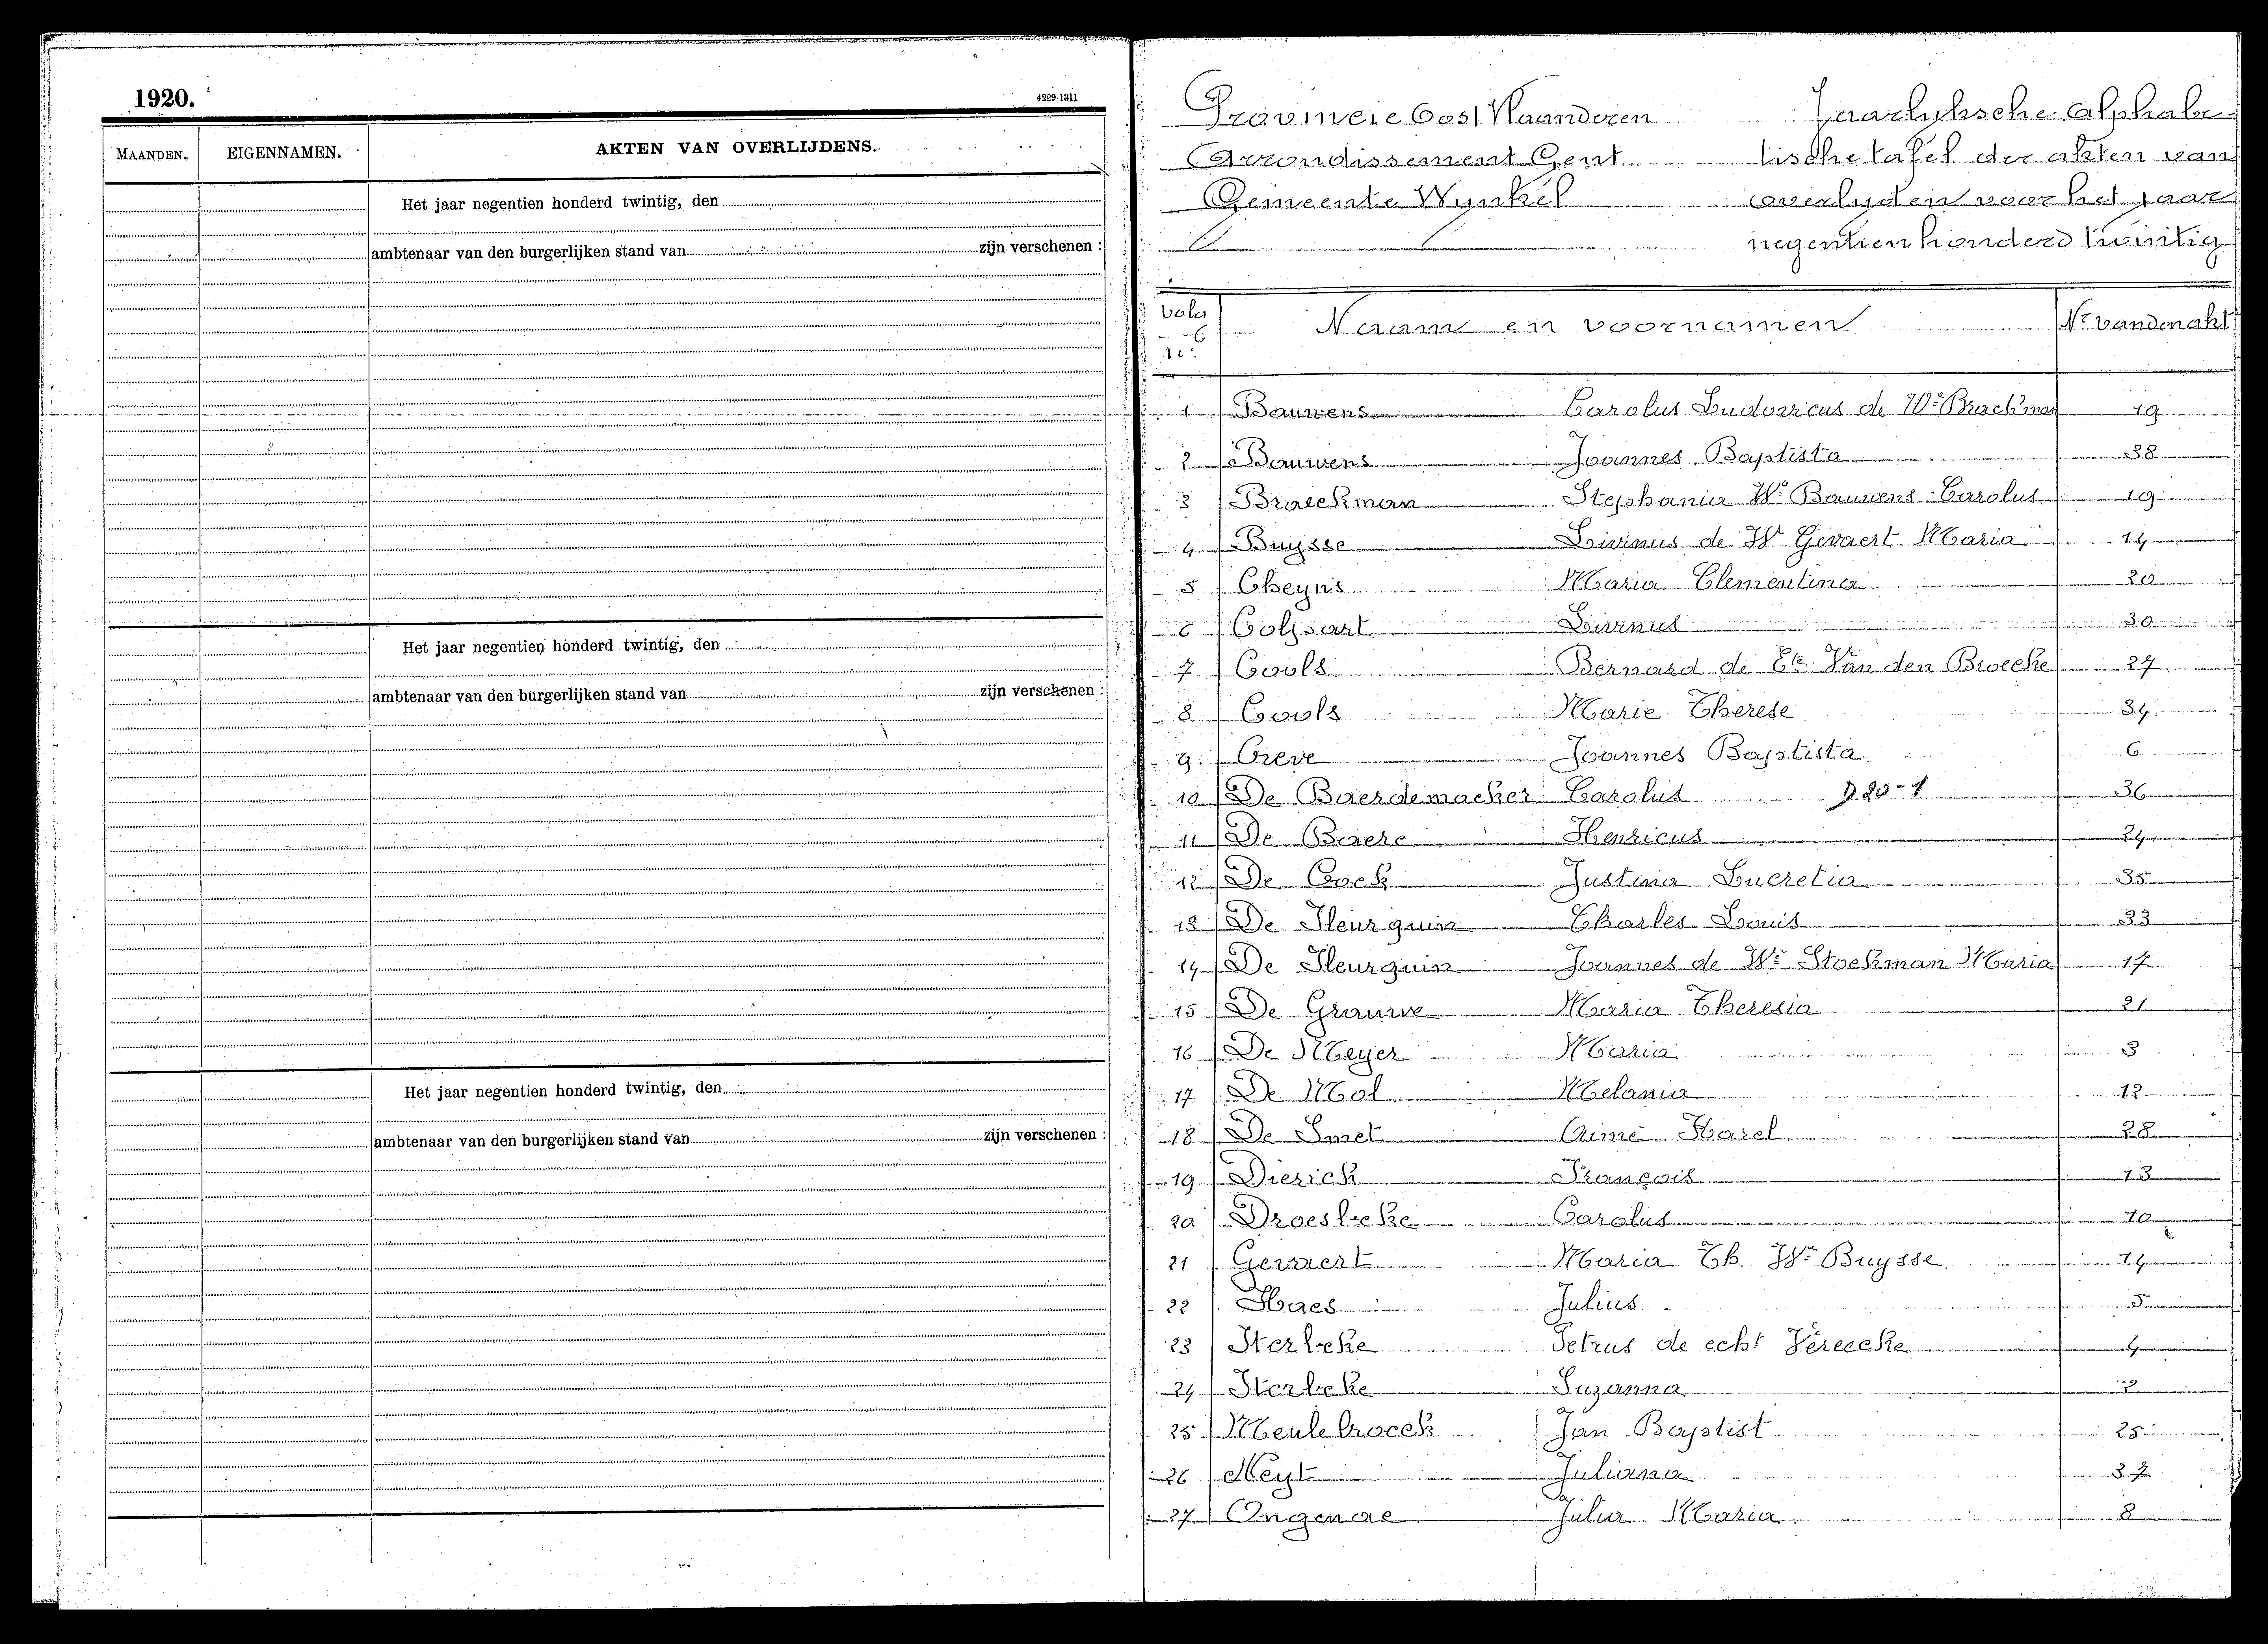 1920.
4229-1311
MAANDEN. EIGENNAMEN. AKTEN VAN OVERLIJDENS.
Het jaar negentien honderd twintig, den
ambtenaar van den burgerlijken stand van zijn verschenen :
Het jaar negentien honderd twintig, den
ambtenaar van den burgerlijken stand van zijn verschenen :
Het jaar negentien honderd twintig, den
ambtenaar van den burgerlijken stand van zijn verschenen :
Provincie Oost Vlaanderen Jaarlyksche alphabe-
Arrondissement Gent tische tafel der akten van
Gemeente Wynkel overlyden voor het jaar
negentien honderd twintig
Volg nr Naam en voornamen Nr van den akt
1 Bauwens Carolus Ludovicus de We Brackman 19
2 Bauwens Joannes Baptista 38
3 Braeckman Stephania We Bauwens Carolus 19
4 Buysse Livinus de We Gevaert Maria 14
5 Cheyns Maria Clementina 20
6 Livinus 30
7 Cools Bernard de Ete Van den Broecke 27
8 Cools Marie Therese 34
9 Creve Joannes Baptista 6
10 De Baerdemacker Carolus D 20-1 36
11 De Baere Henricus 24
12 De Cock Justina Lucretia 35
13 De Fleurquin Charles Louis 33
14 De Fleurquin Joannes de We Stockman Maria 17
15 De Grauwe Maria Theresia 21
16 De Meyer Maria 3
17 De Mol Melania 12
18 De Smet Aimé Karel 28
19 Dierick François 13
20 Droesbeke Carolus 10
21 Gevaert Maria Th. We Buysse 14
22 Haes Julius 5
23 Herbeke Petrus de echt Vereecke 4
24 Herbeke Suzanna 2
25 Meulebroeck Jan Baptist 25
26 Neyt Juliana 37
27 Ongenae Julia Maria 8